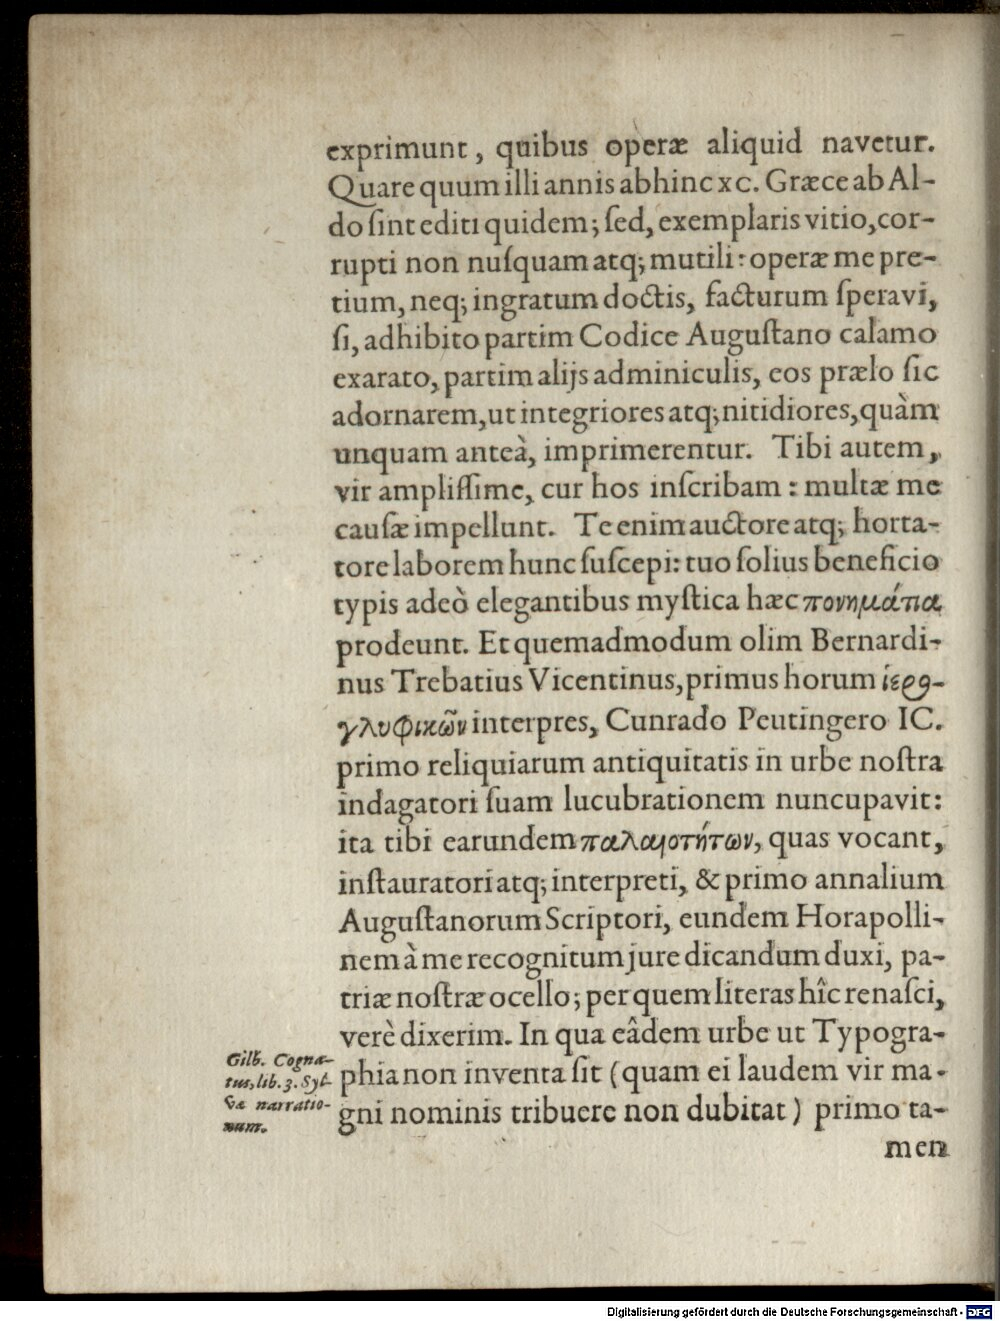 exprimunt, quibus operæ aliquid navetur.
Quare quum illi annis abhinc xc. Græce ab Al-
do ſint editi quidem; ſed, exemplaris vitio, cor-
rupti non nuſquam atq; mutili: operæ me pre-
tium, neq; ingratum doctis, facturum ſperavi,
ſi, adhibito partim Codice Auguſtano calamo
exarato, partim alijs adminiculis, eos prælo ſic
adornarem, ut integriores atq; nitidiores, quàm
unquam anteà, imprimerentur. Tibi autem,
vir ampliſſime, cur hos inſcribam: multæ me
cauſæ impellunt. Te enim auctore atq; horta-
tore laborem hunc ſuſcepi: tuo ſolius beneficio
typis adeò elegantibus myſtica hæc πονημάτια
prodeunt. Et quemadmodum olim Bernardi-
nus Trebatius Vicentinus, primus horum ἱερο-
γλυφικῶν interpres, Cunrado Peutingero IC.
primo reliquiarum antiquitatis in urbe noſtra
indagatori ſuam lucubrationem nuncupavit:
ita tibi earundem παλαιοτήτων, quas vocant,
inſtauratori atq; interpreti, & primo annalium
Auguſtanorum Scriptori, eundem Horapolli-
nem à me recognitum jure dicandum duxi, pa-
triæ noſtræ ocello; per quem literas hîc renaſci,
verè dixerim. In qua eâdem urbe ut Typogra-
phia non inventa ſit (quam ei laudem vir ma-
gni nominis tribuere non dubitat) primo ta-
men
Gilb. Cogna-
tus, lib. 3. Syl-
væ narratio-
num.
Digitalisierung gefördert durch die Deutsche Forschungsgemeinschaft - DFG